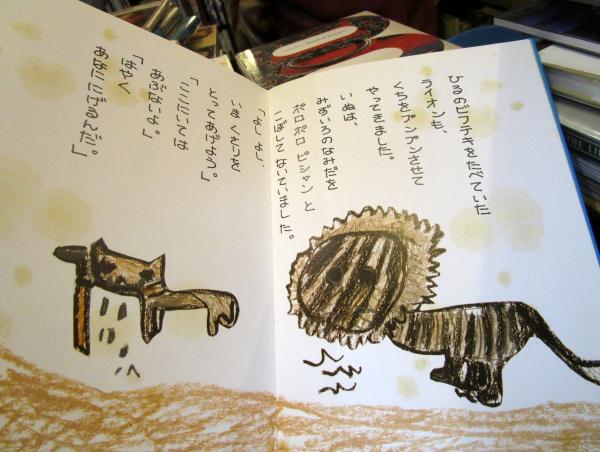 ひるのビフテキをたべていた
ライオンも、
くちをプンプンさせて
やってきました。
いぬは、
みずいろのなみだを
ポロポロ ピシャン と
こぼしてないていました。
「よし よし、
いま くさりを
とってあげよう。」
「ここにいては
あぶないよ。
「はやく
にげるんだ。」
THE LI